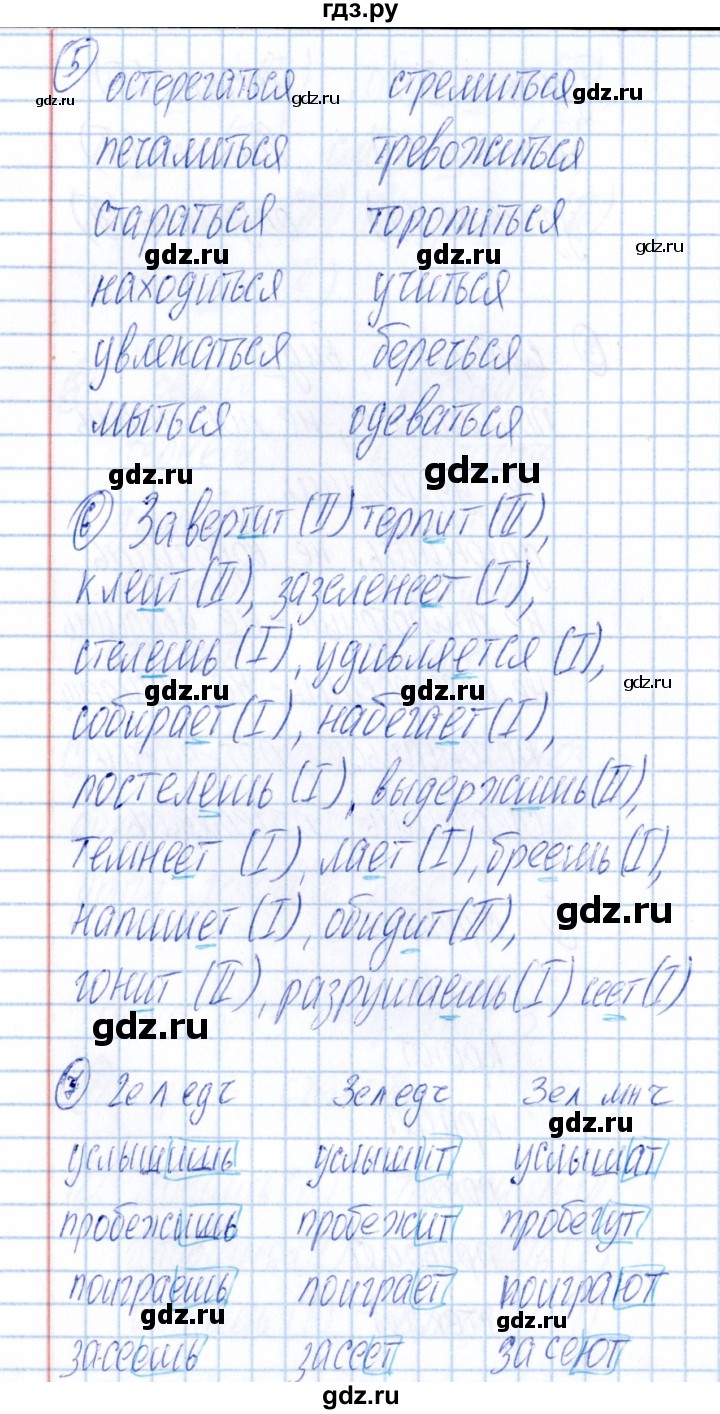 гдз.ру
5 остерегаться стремиться
gdz.ru gdz.ru gdz.ru
печалиться тревожиться
стараться торопиться
gdz.ru gdz.ru gdz.ru
находиться учиться
увлекаться беречься
мыться одеваться
gdz.ru gdz.ru
6 Завертит (II) терпит (II),
клеит (II), зазеленеет (I),
стелешь (I), удивляется (I),
gdz.ru gdz.ru gdz.ru
собирает (I), набегает (I),
постелешь (I), выдержишь (II),
темнеет (I), лает (I), бреешь (I),
напишет (I), обидит (II),
gdz.ru
гонит (II), разрушаешь (I) сеет (I)
gdz.ru
7 2е л ед ч 3е л ед ч 3е л мн ч
gdz.ru
услышишь услышит услышат
пробежишь пробежит пробегут
поиграешь поиграет поиграют
gdz.ru gdz.ru
засеешь засеет засеют
gdz.ru